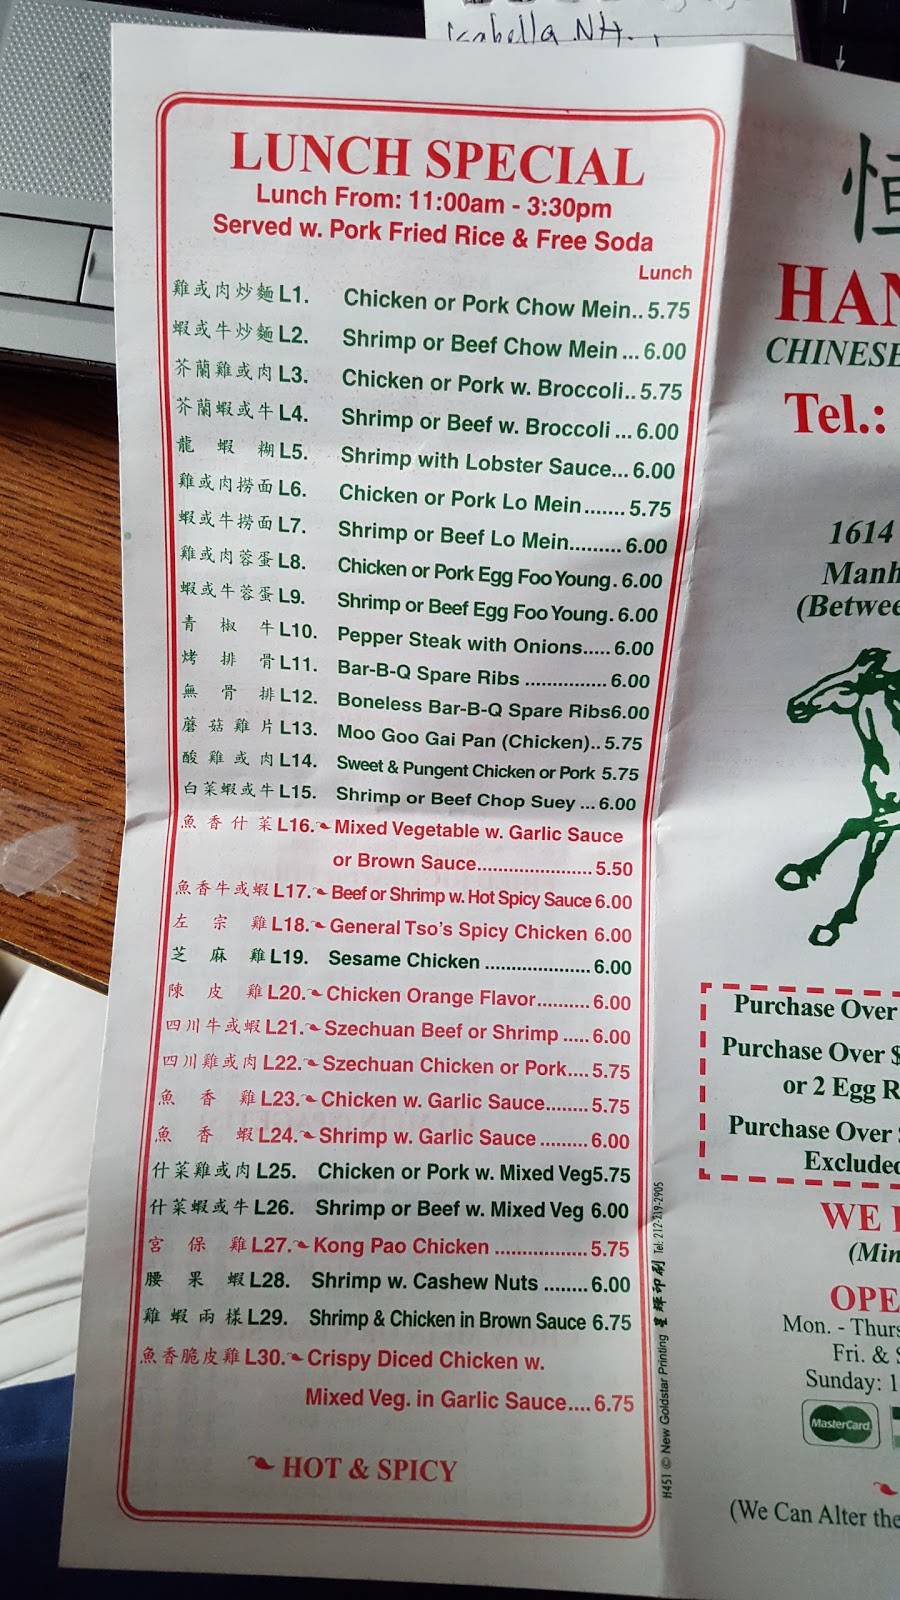 Isabella NH.
LUNCH SPECIAL
Lunch From: 11:00am - 3:30pm
Served w. Pork Fried Rice & Free Soda
Lunch
雞或肉炒麵 L1. Chicken or Pork Chow Mein.. 5.75
蝦或牛炒麵 L2. Shrimp or Beef Chow Mein ... 6.00
芥蘭雞或肉 L3. Chicken or Pork w. Broccoli.. 5.75
芥蘭蝦或牛 L4. Shrimp or Beef w. Broccoli ... 6.00
龍 蝦 糊 L5. Shrimp with Lobster Sauce... 6.00
雞或肉撈面 L6. Chicken or Pork Lo Mein....... 5.75
蝦或牛撈面 L7. Shrimp or Beef Lo Mein......... 6.00
雞或肉蓉蛋 L8. Chicken or Pork Egg Foo Young. 6.00
蝦或牛蓉蛋 L9. Shrimp or Beef Egg Foo Young. 6.00
青 椒 牛 L10. Pepper Steak with Onions..... 6.00
烤 排 骨 L11. Bar-B-Q Spare Ribs ............... 6.00
無 骨 排 L12. Boneless Bar-B-Q Spare Ribs6.00
蘑菇雞片 L13. Moo Goo Gai Pan (Chicken).. 5.75
酸雞或肉 L14. Sweet & Pungent Chicken or Pork 5.75
白菜蝦或牛 L15. Shrimp or Beef Chop Suey ... 6.00
魚香什菜 L16. Mixed Vegetable w. Garlic Sauce
or Brown Sauce...................... 5.50
魚香牛或蝦 L17. Beef or Shrimp w. Hot Spicy Sauce 6.00
左 宗 雞 L18. General Tso's Spicy Chicken 6.00
芝 麻 雞 L19. Sesame Chicken .................... 6.00
陳 皮 雞 L20. Chicken Orange Flavor.......... 6.00
四川牛或蝦 L21. Szechuan Beef or Shrimp ..... 6.00
四川雞或肉 L22. Szechuan Chicken or Pork.... 5.75
魚 香 雞 L23. Chicken w. Garlic Sauce........ 5.75
魚 香 蝦 L24. Shrimp w. Garlic Sauce ......... 6.00
什菜雞或肉 L25. Chicken or Pork w. Mixed Veg5.75
什菜蝦或牛 L26. Shrimp or Beef w. Mixed Veg 6.00
宮 保 雞 L27. Kong Pao Chicken .................. 5.75
腰 果 蝦 L28. Shrimp w. Cashew Nuts ........ 6.00
雞蝦兩樣 L29. Shrimp & Chicken in Brown Sauce 6.75
魚香脆皮雞 L30. Crispy Diced Chicken w.
Mixed Veg. in Garlic Sauce.... 6.75
HOT & SPICY
H451 © New Goldstar Printing 星輝印刷 Tel: 212-219-2905
恒
HAN
CHINESE
Tel.:
1614
Manh
(Betwee
Purchase Over
Purchase Over $
or 2 Egg R
Purchase Over
Excluded
WE
(Min
OPE
Mon. - Thurs
Fri. & S
Sunday: 1
MasterCard
(We Can Alter the